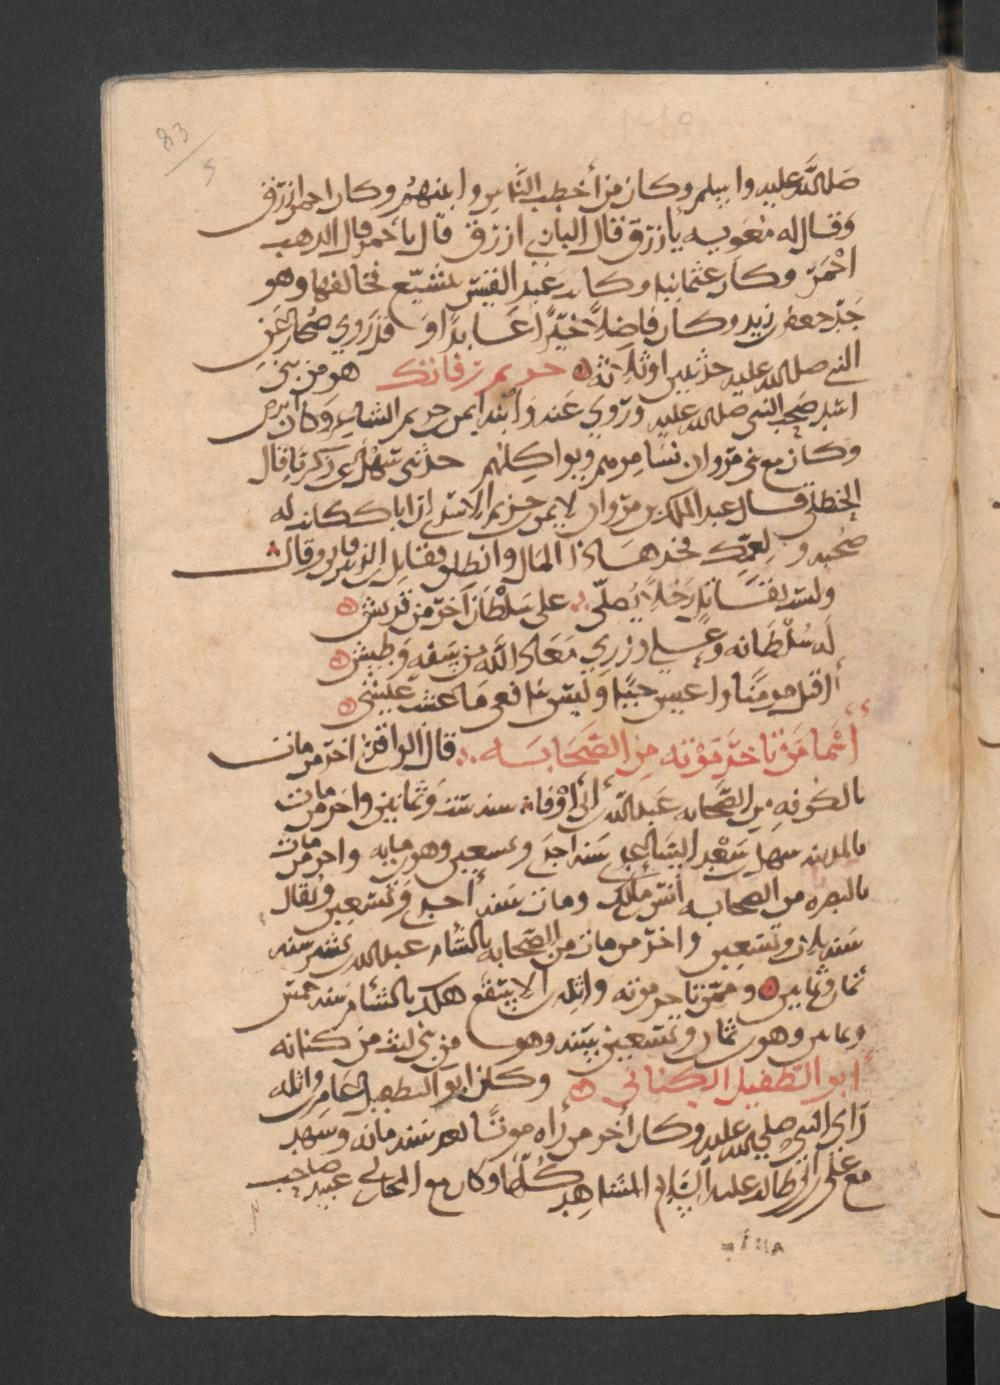 83
5
صلى الله عليه واسلم وكان من أخطب الناس وابينهم وكان احمر ازرق
وقال له معويه يا ازرق قال البازي ازرق قال يا أحمر قال الذهب
احمر وكان عثمانيا وكانت عبد القيس تتشيع فخالفها وهو
جد جعفر بن زيد وكان فاضلا خيرا عابدا وقد روى صحار عن
النبي صلى الله عليه حديثين او ثلاثة خريم بن فاتك هو من بني
اسد صحب النبي صلى الله عليه وروى عنه وابنه ايمن بن خريم الشاعر وكان ابرص
وكان مع بني مروان يسامرهم ويواكلهم حدثني سهل عن زكريا قال
الحنظلي قال عبد الملك بن مروان لايمن بن خريم الاسدي ان اباك كانت له
صحبه ولعمك فخذ هاذا المال وانطلق فقاتل ابن الزبير فابى وقال
ولست بقاتل رجلا يصلي على سلطان آخر من قريش
له سلطانه وعلي وزري معاذ الله من سفه وطيش
أاقتل مومنا واعيش حيا وليس بنافعي ما عشت عيشي
أسما من تاخر موته من الصحابه قال الواقدي اخر من مات
بالكوفه من الصحابه عبد الله بن أبي أوفى مات سنه ست وثمانين واخر من مات
بالمدينه سهل بن سعد الساعدي سنه احدى وتسعين وهو بن مايه واخر من مات
بالبصره من الصحابه أنس بن ملك ومات سنه أحدى وتسعين ويقال
سنه ثلاث وتسعين واخر من مات من الصحابه بالشام عبد الله بن بسر سنه
ثمان وثمانين وممن تاخر موته واثله بن الاسقع هلك بالشام سنه خمس
وثمانين وهو بن ثمان وتسعين سنه وهو من بني ليث من كنانه
أبو الطفيل الكناني وكان ابو الطفيل عامر بن واثله
رأى النبي صلى الله عليه وكان أخر من رأه موتا بعد سنه مائه وشهد
مع علي بن أبي طالب عليه السلام المشاهد كلها وكان مع المختار بن ابي عبيد صاحب